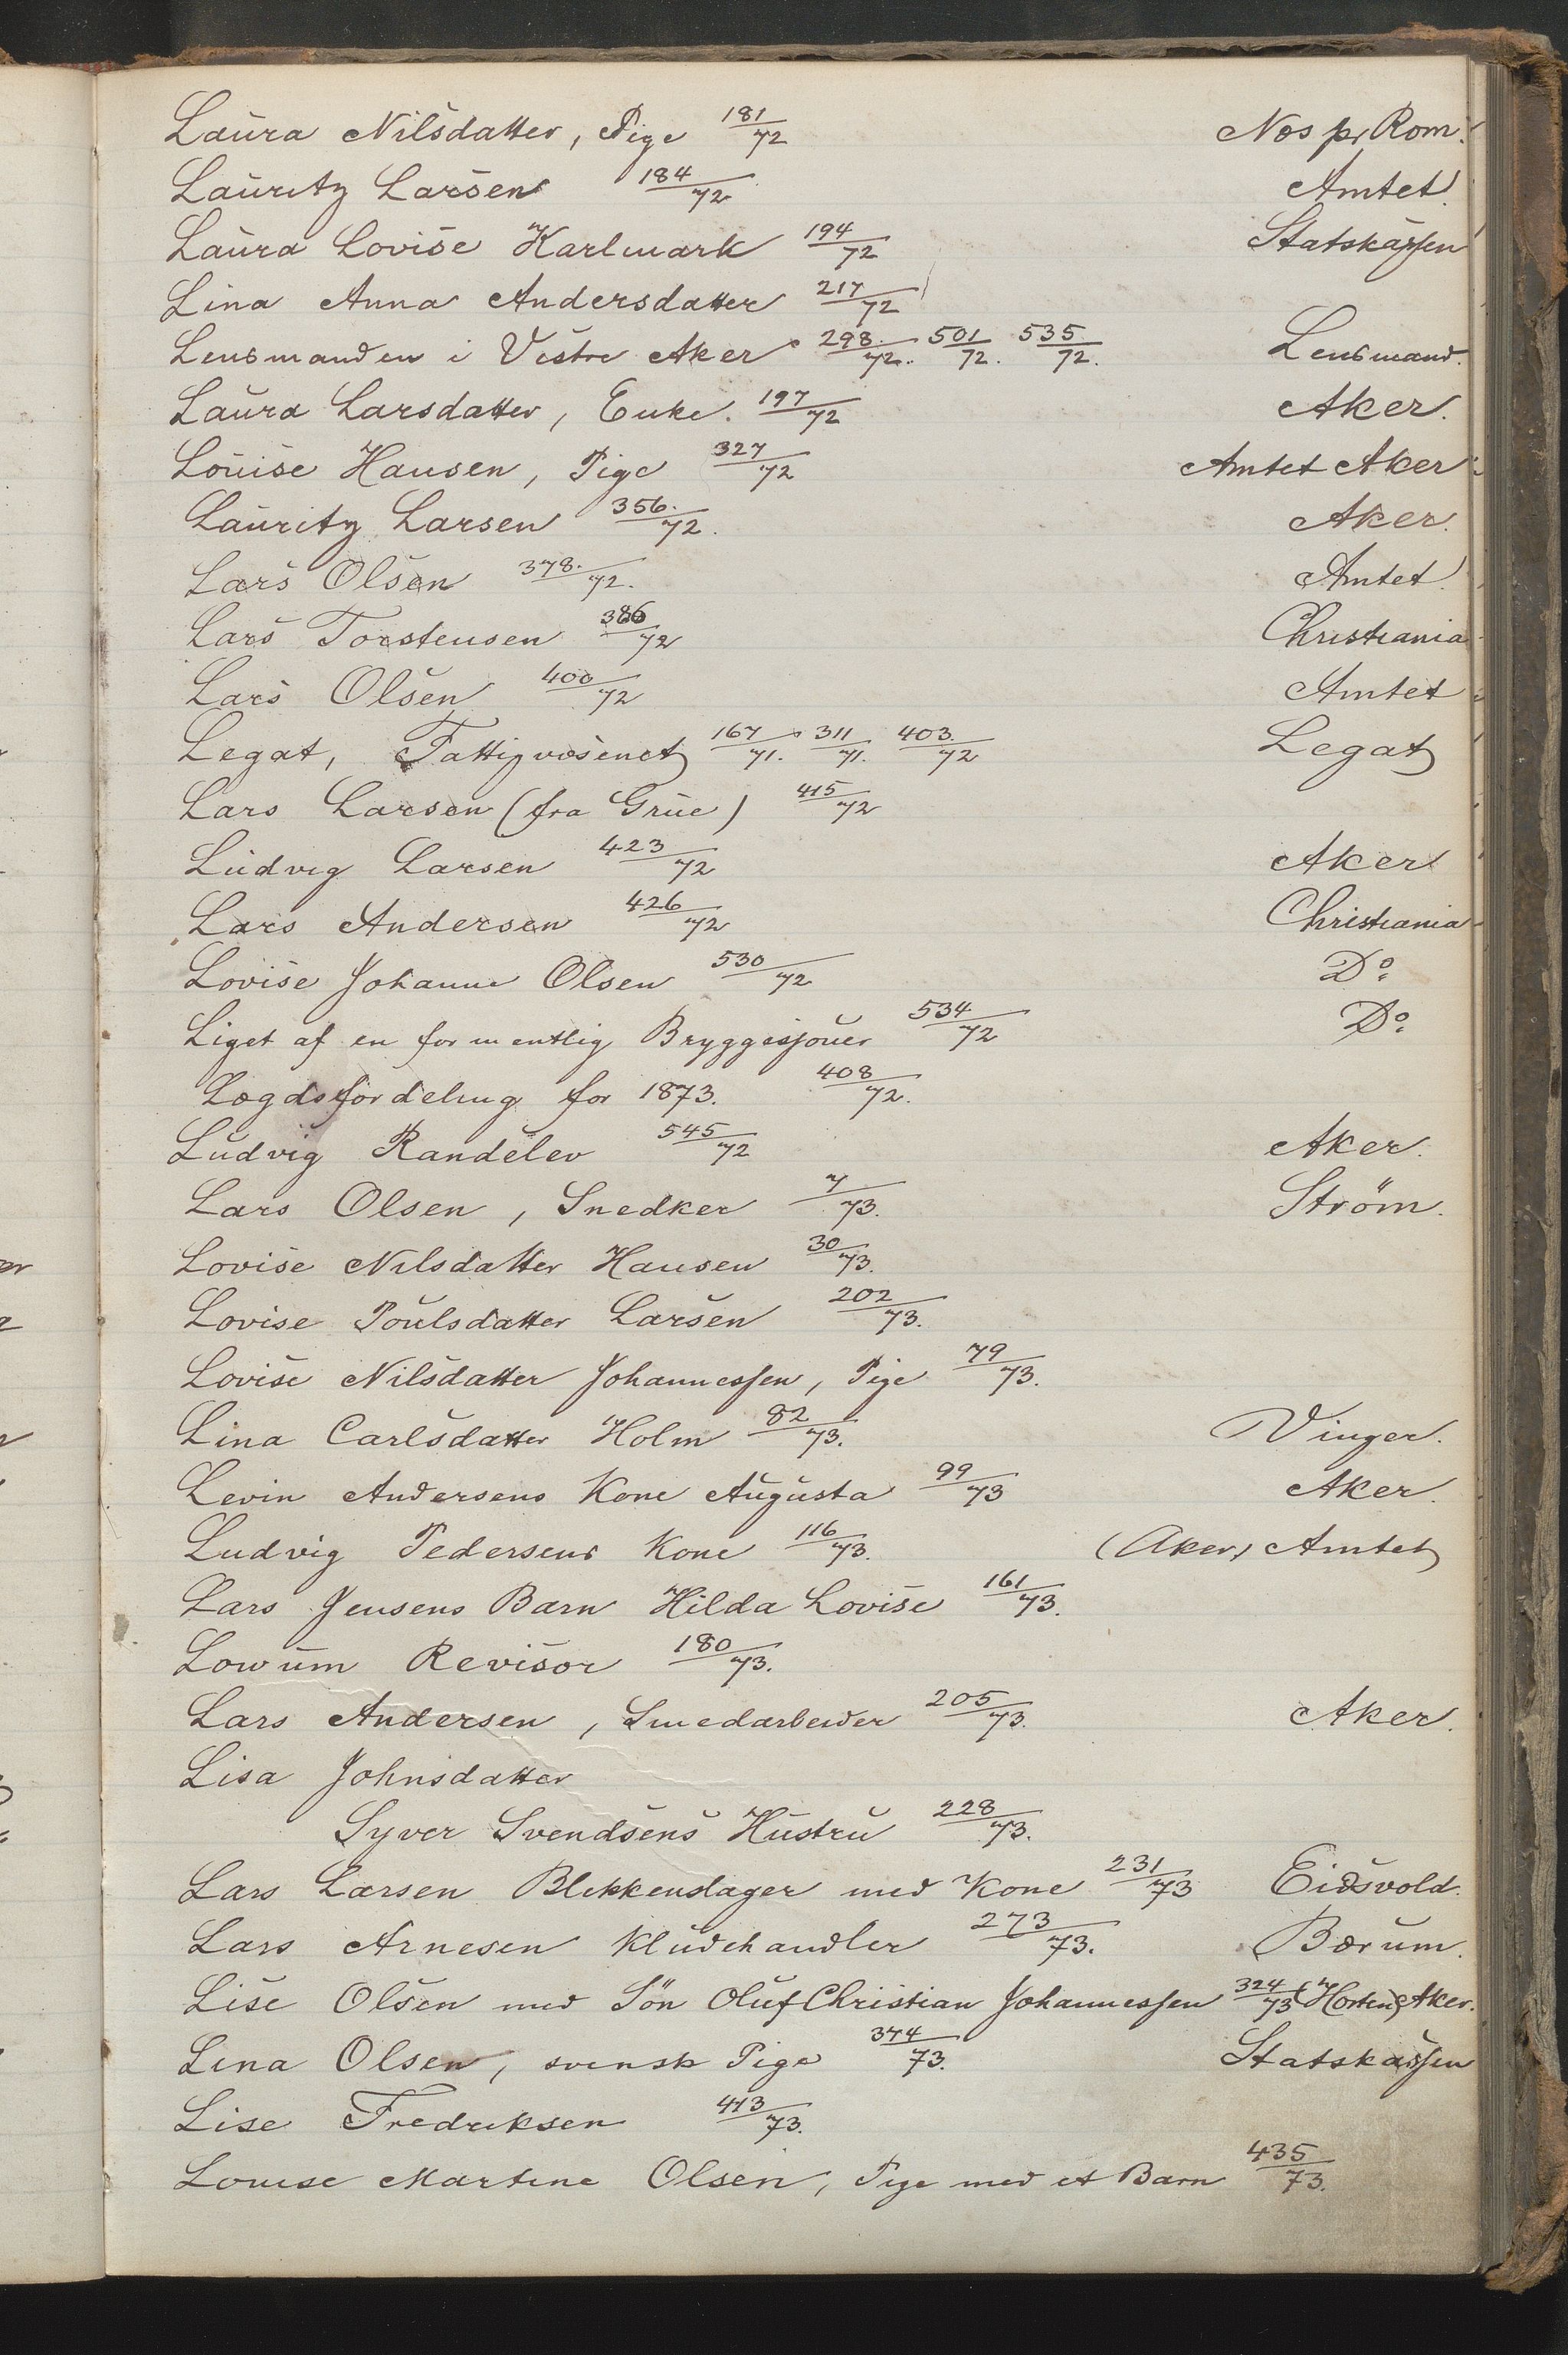 Laura Nilsdatter, Pige 181/72 Næs pr Rom.
Lauritz Larsen 184/72 Amtet
Laura Lovise Karlmark 194/72 Statskassen
Lina Anna Andersdatter 217/72
Lensmanden i Vestre Aker 298/72. 501/72. 535/72. Lensmand.
Laura Larsdatter, Enke. 197/72 Aker.
Louise Hansen, Pige 327/72 Amtet Aker
Lauritz Larsen 356/72. Aker.
Lars Olsen 378/72. Amtet
Lars Torstensen 386/72 Christiania
Lars Olsen 400/72 Amtet
Legat, Fattigvæsenet 167/71. 311/71. 403/72 Legat
Lars Larsen (fra Grue) 415/72
Ludvig Larsen 423/72 Aker
Lars Andersen 426/72 Christiania
Lovise Johanne Olsen 530/72 Do
Liget af en formentlig Bryggesjouer 534/72 Do
Lægdsfordeling for 1873. 408/72.
Ludvig Randelev 545/72 Aker.
Lars Olsen, Snedker 7/73. Ström.
Lovise Nilsdatter Hansen 30/73.
Lovise Poulsdatter Larsen 202/73.
Lovise Nilsdatter Johannessen, Pige 79/73.
Lina Carlsdatter Holm 82/73. Vinger.
Levin Andersens Kone Augusta 99/73 Aker.
Ludvig Pedersens Kone 116/73. (Aker) Amtet
Lars Jensens Barn Hilda Lovise 161/73.
Lowum Revisor 180/73.
Lars Andersen, Smedarbeider 205/73. Aker.
Lisa Johnsdatter
Syver Svendsens Hustru 228/73.
Lars Larsen Blikkenslager med Kone 231/73 Eidsvold.
Lars Arnesen Kludehandler 273/73. Bærum.
Lise Olsen med Sön Oluf Christian Johannessen 324/73 (Horten) Aker.
Lina Olsen, svensk Pige 374/73. Statskassen
Lise Fredriksen 413/73.
Louise Martine Olsen, Pige med et Barn 435/73.